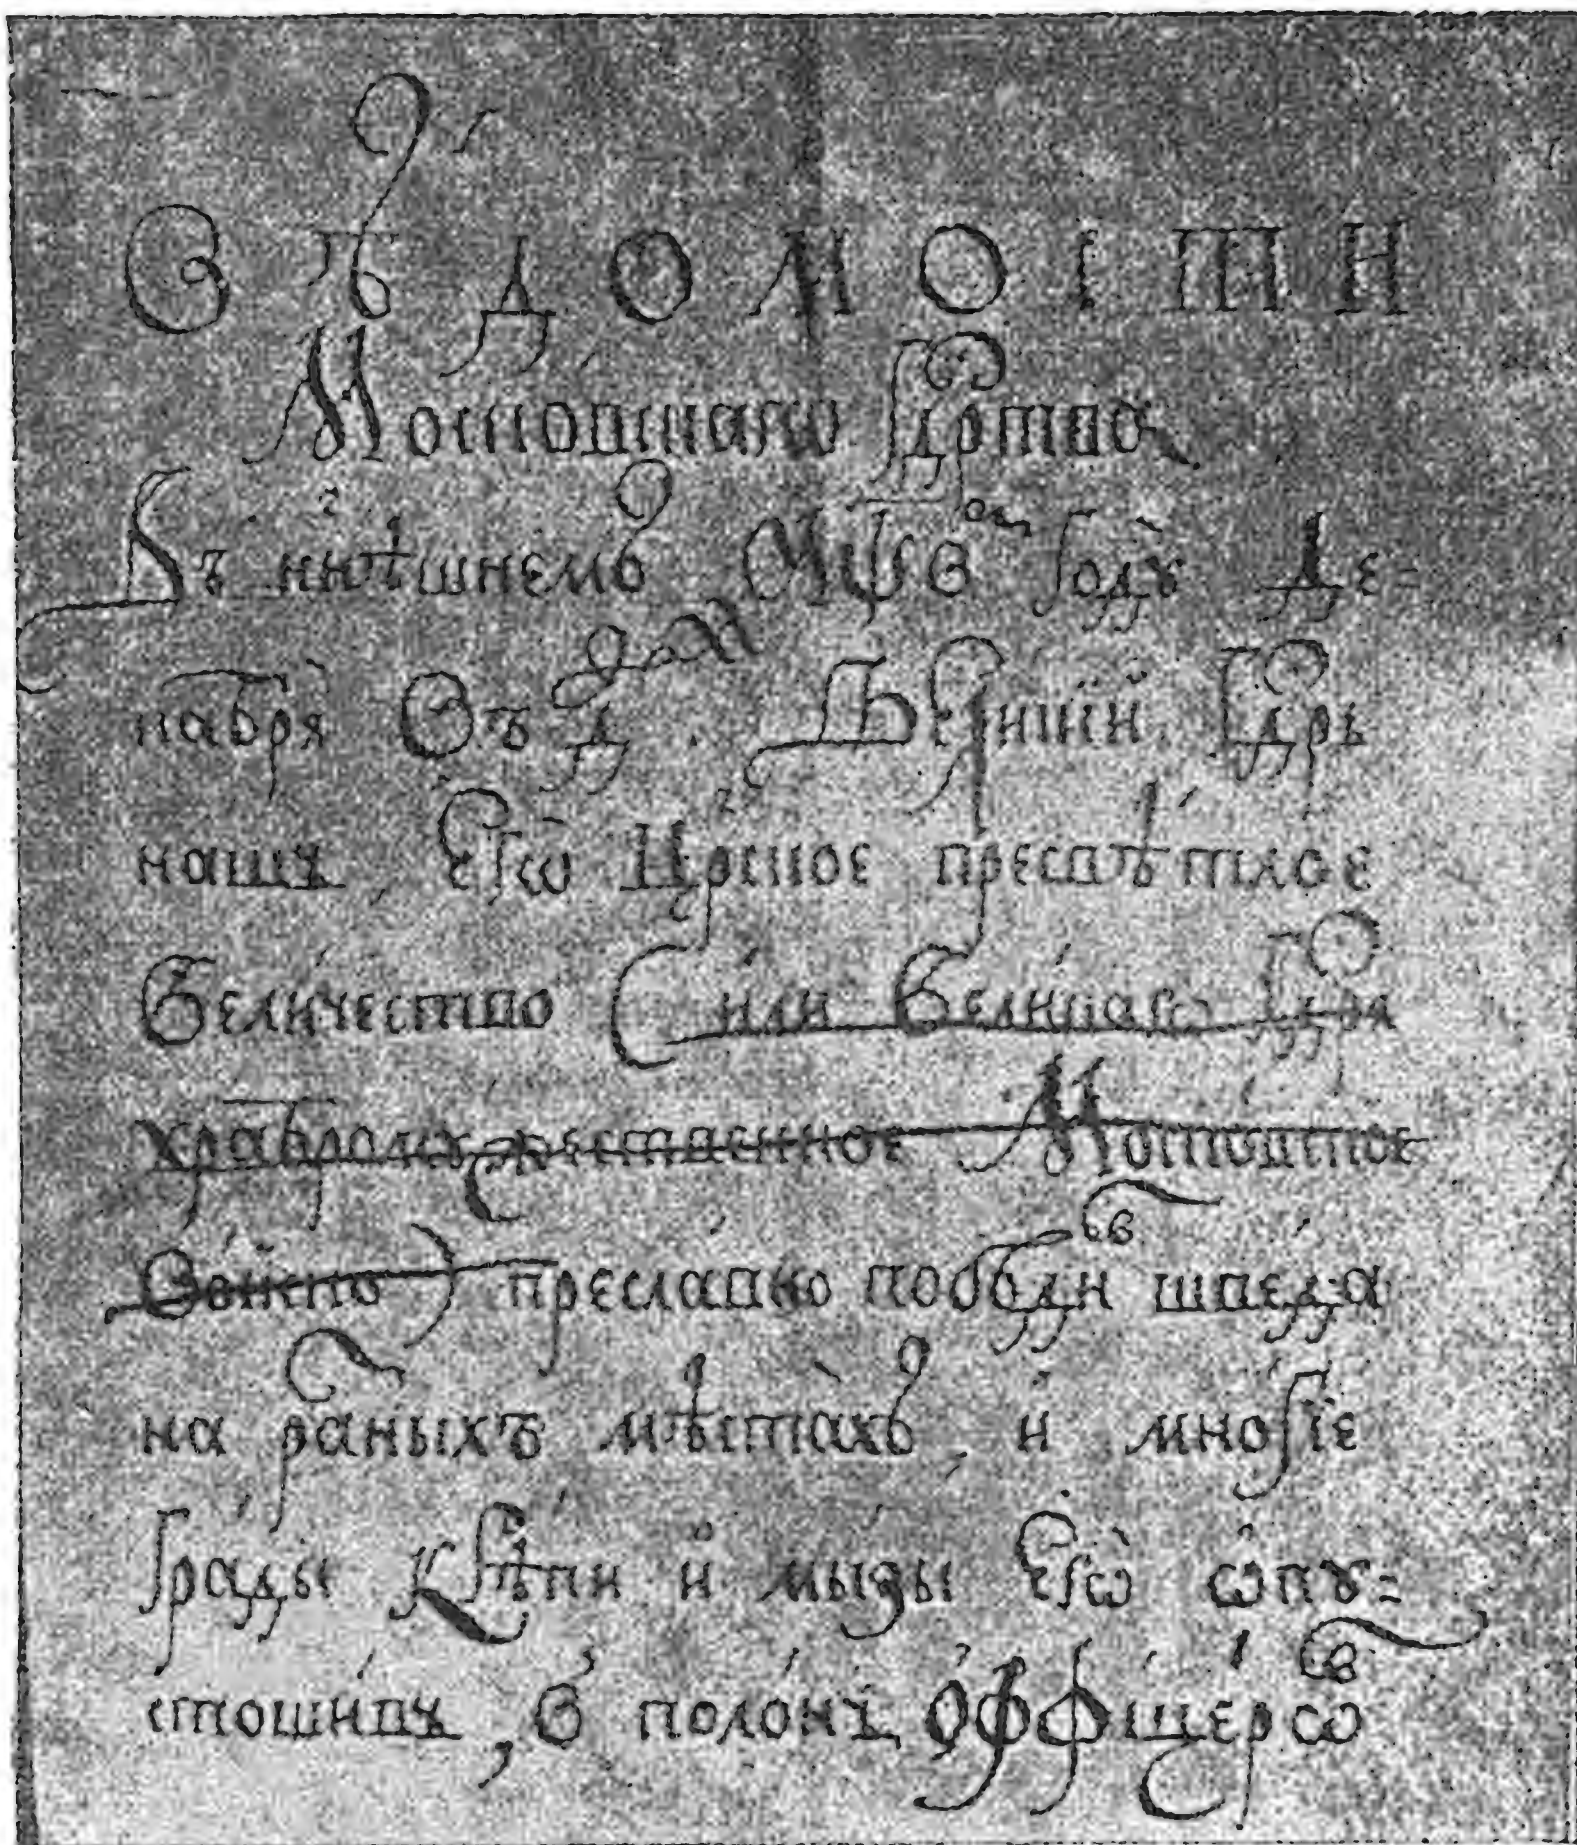 ВѢДОМОСТИ
Московскаго Гдрства
Въ нн҃ѣшнемъ ҂аѱв году Де=
кабря въ д Великий Гдрь
нашъ, Егѡ Црское пресвѣтлое
Величество (или Великагѡ Гдря
храбромужественное Московское
Войско) преславно победи шведа
на разныхъ мѣстахъ, и многие
грады крѣпки и мызы Егѡ ѡпу=
стошивъ, в полонъ оффицерѡв